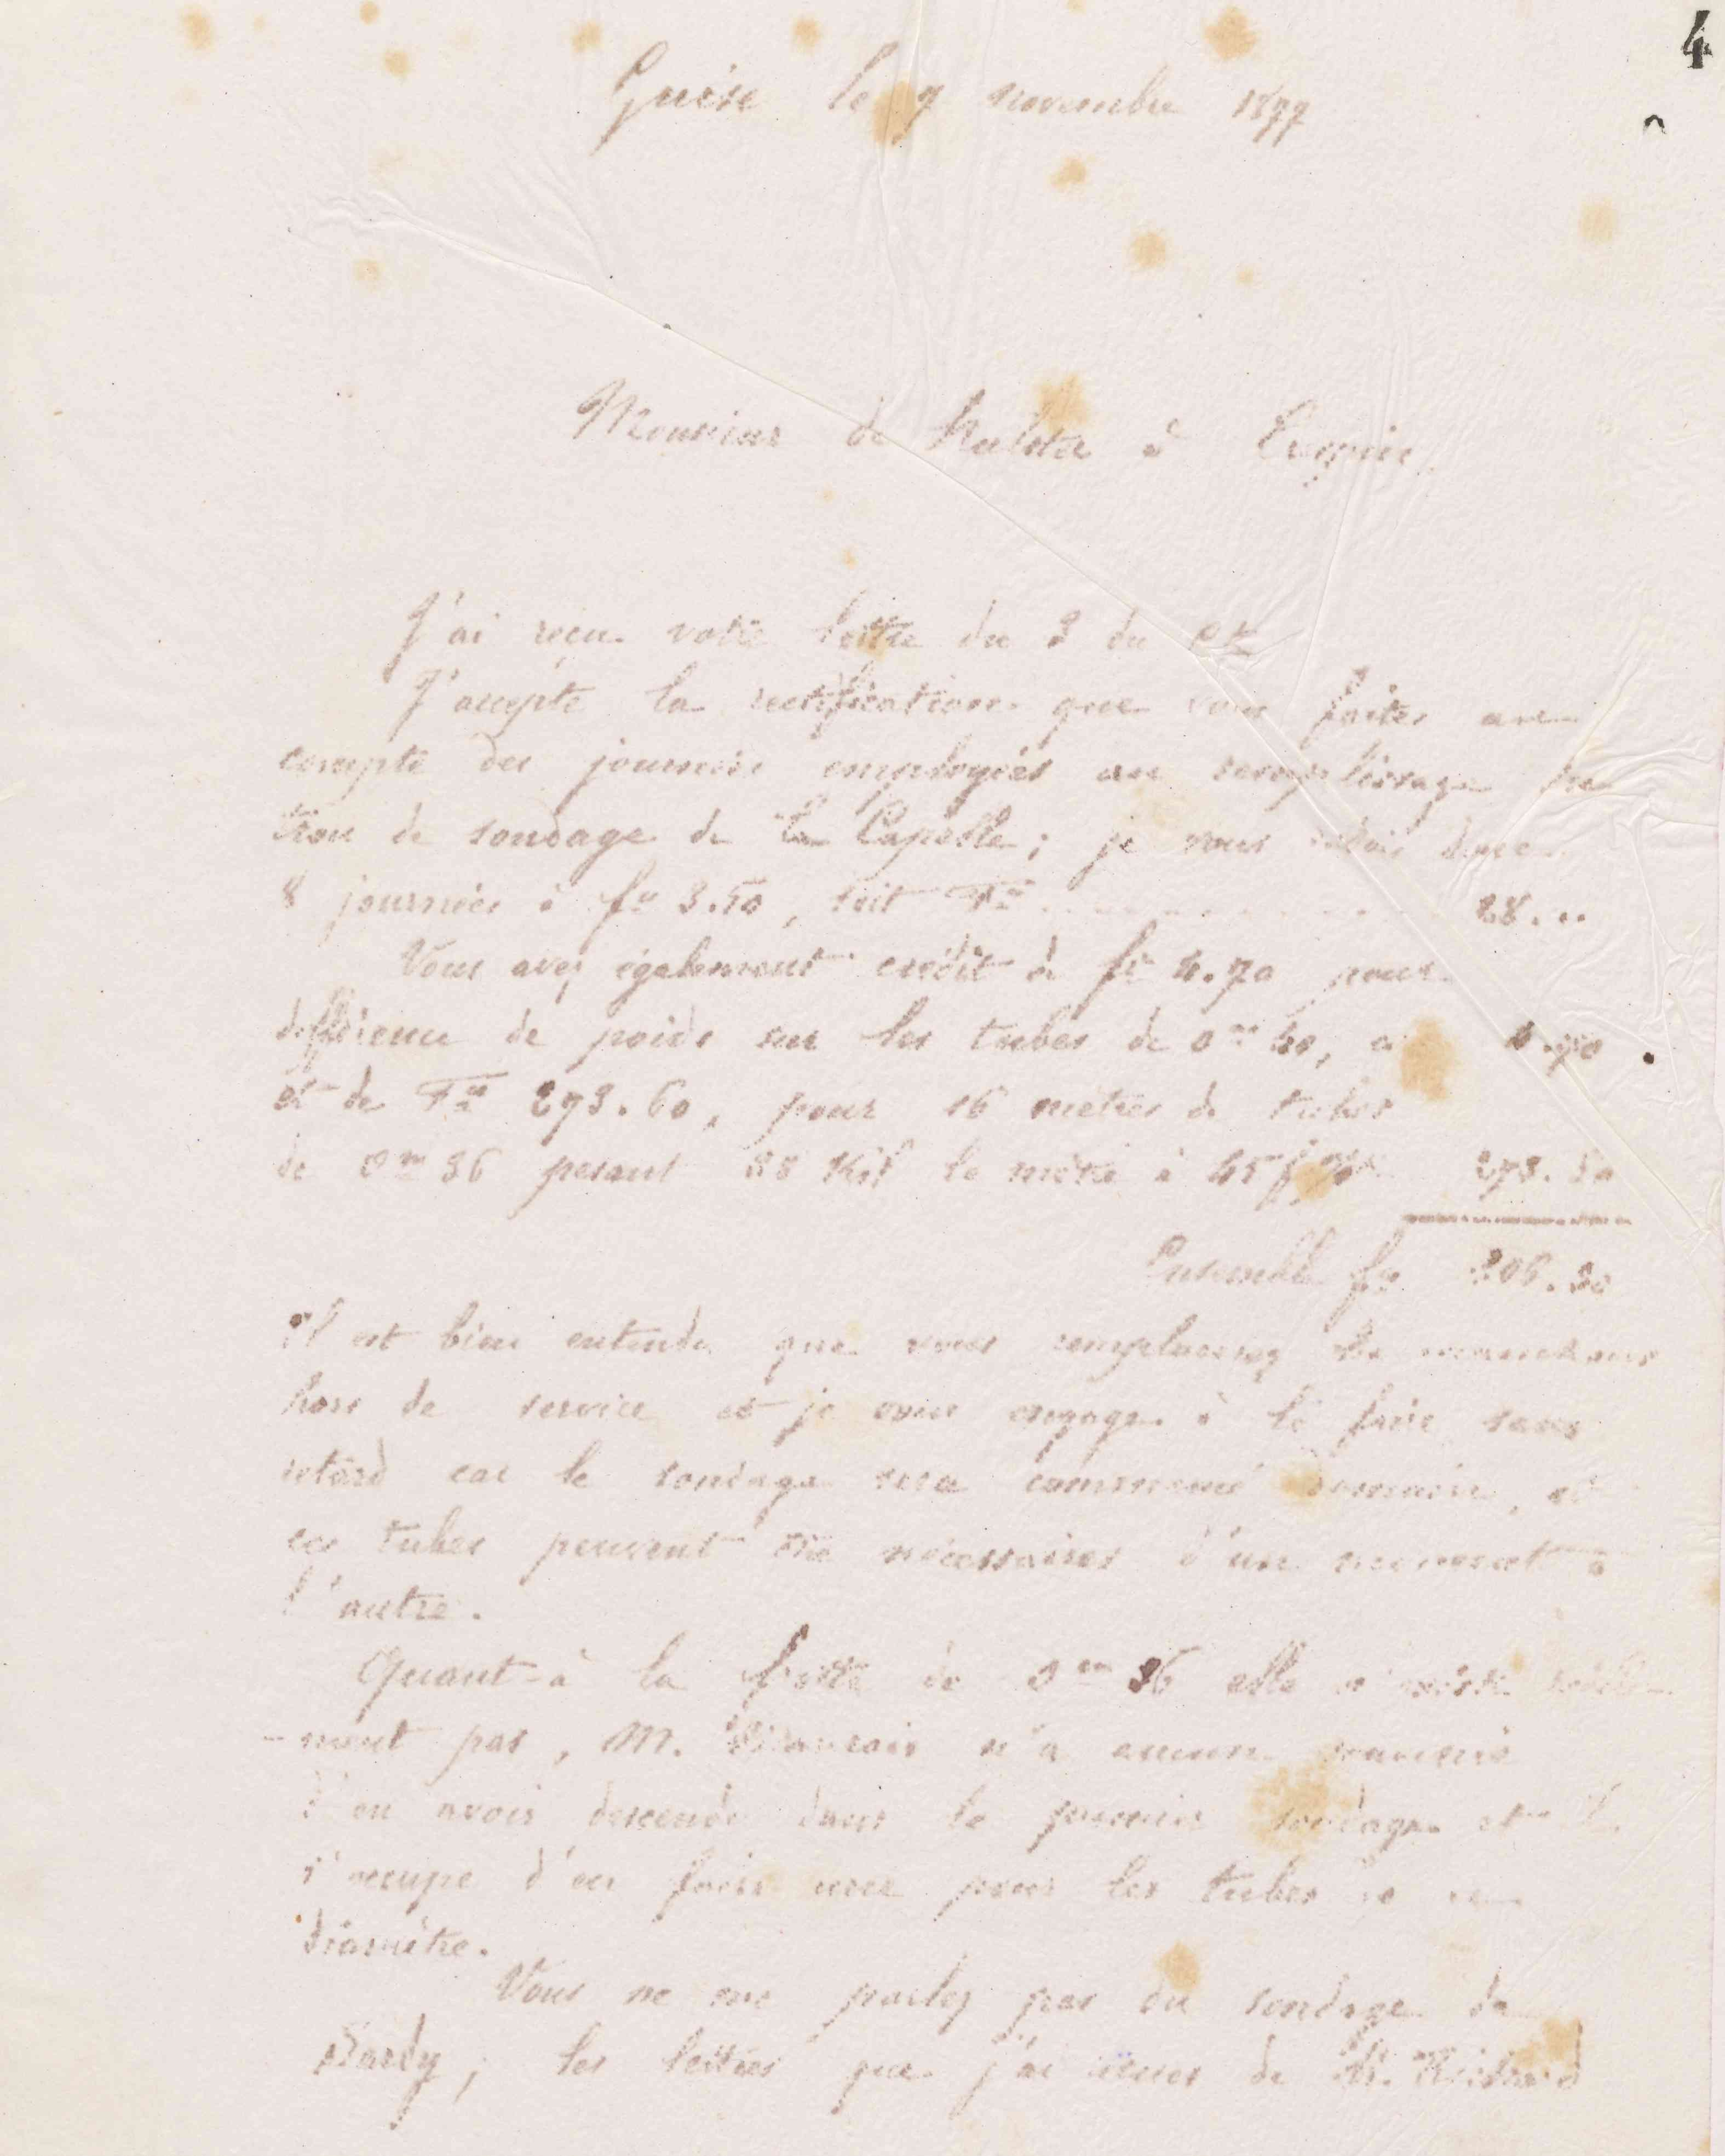 4
Guise le 9 novembre 1899
Monsieur de Hulster à Crespin
J'ai reçu votre lettre du 3 du ct
J'accepte la rectification que vous faites au
compte des journées employées au remplissage du
trou de sondage de La Capelle; je vous redois donc
8 journées à fr 3.50, soit Frs 28. ..
Vous avez également crédit de fr 4.70 pour
différence de poids sur les tubes de 0m 40, ci 4.70
et de Frs 273.60, pour 16 mètres de tubes
de 0m 36 pesant 38 Kil le mètre à 45 f % 273.60
Ensemble fr 306.30
Il est bien entendu que vous remplacerez les manchons
hors de service et je vous engage à le faire sans
retard car le sondage sera commencé demain, et
ces tubes peuvent être nécessaires d'un moment à
l'autre.
Quant-à la frette de 0m 36 elle n'existe réelle-
-ment pas, M. n'a aucun souvenir
d'en avoir descendu dans le premier sondage et il
s'occupe d'en faire une pour les tubes de ce
diamètre.
Vous ne me parlez pas du sondage de
Sardy; les lettres que j'ai reçues de M. Richard